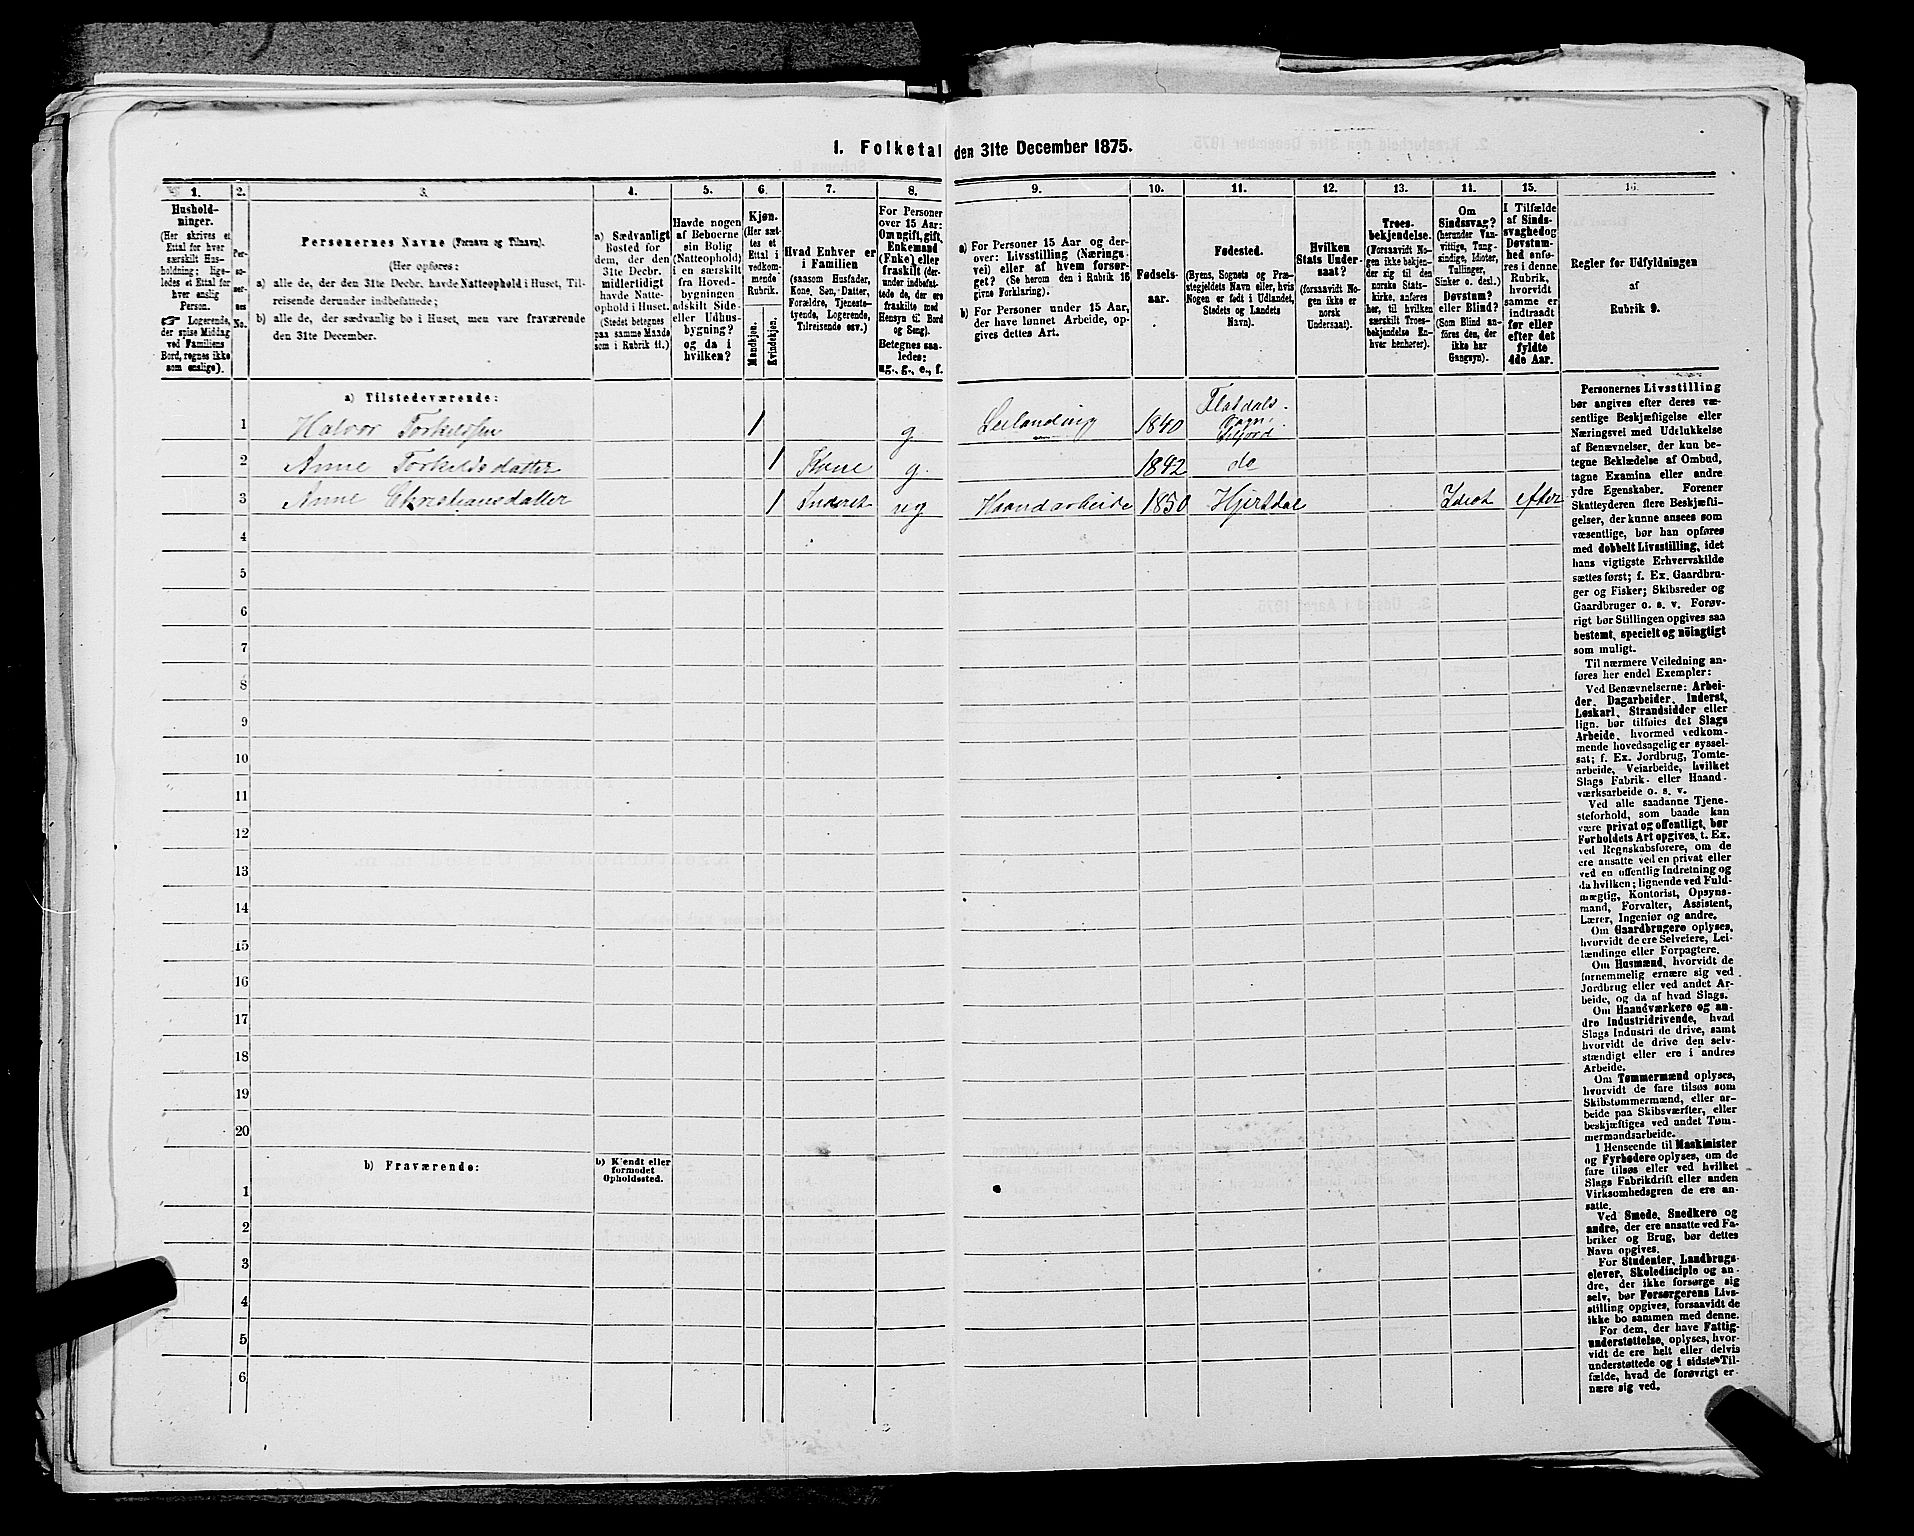 1. Folketal den 31te December 1875.
1.
Hushold-
ninger.
(Her skrives et
Ettal for hver
særskilt Hus-
holdning; lige-
ledes et Ettal for
hver enslig
Person.
☞ Logerende,
der spise Middag
ved Familiens
Bord, regnes ikke
som enslige).
2.
Per-
so-
ner-
nes
No.
3.
Personernes Navne (Fornavn og Tilnavn).
(Her opføres:
a) alle de, der den 31te Decbr. havde Natteophold i Huset, Til-
reisende derunder indbefattede;
b) alle de, der sædvanlig bo i Huset, men vare fraværende
den 31te December.
4.
a) Sædvanligt
Bosted for
dem, der den
31te Decbr.
midlertidigt
havde Natte-
ophold i Huset.
(Stedet betegnes
paa samme Maade
som i Rubrik 11.)
5.
Havde nogen
af Beboerne
sin Bolig
(Natteophold)
i en særskilt
fra Hoved-
bygningen
adskilt Side-
eller Udhus-
bygning?
og da i
hvilken?
6.
Kjøn.
(Her sæt-
tes et
Ettal i
vedkom-
mende
Rubrik.
Mandkjøn.
Kvindekjøn.
7.
Hvad Enhver er
i Familien
(saasom Husfader,
Kone, Søn, Datter,
Forældre, Tjeneste-
tyende, Logerende,
Tilreisende osv.)
8.
For Personer
over 15 Aar:
Om ugift, gift,
Enkemand
(Enke) eller
fraskilt (der-
under indbefat-
tede de, der ere
fraskilte med
Hensyn til Bord
og Seng).
Betegnes saa-
ledes:
ug., g., e., f.
9.
a) For Personer 15 Aar og der-
over: Livsstilling (Nærings-
vei) eller af hvem forsør-
get? (Se herom den i Rubrik 16
givne Forklaring).
b) For Personer under 15 Aar,
der have lønnet Arbeide, op-
gives dettes Art.
10.
Fødsels-
aar.
11.
Fødested.
(Byens, Sognets og Præ-
stegjeldets Navn eller, hvis
Nogen er født i Udlandet,
Stedets og Landets
Navn).
12.
Hvilken
Stats Under-
saat?
(forsaavidt No-
gen ikke er
norsk
Undersaat).
13.
Troes-
bekjendelse.
(Forsaavidt No-
gen ikke bekjen-
der sig til den
norske Stats-
kirke, anføres
her, til hvilken
særskilt Troes-
bekjendelse En-
hver henhører).
14.
Om
Sindssvag?
(herunder Van-
vittige, Tung-
sindige, Idioter,
Tullinger,
Sinker o. desl.)
Døvstum?
eller Blind?
(Som Blind an-
føres den, der
ikke har
Gangsyn).
15.
I Tilfælde
af Sinds-
svaghed og
Døvstum-
hed anfø-
res i denne
Rubrik,
hvorvidt
samme er
indtraadt
før eller
efter det
fyldte
4de Aar.
16.
Regler for Udfyldningen
af
Rubrik 9.
a) Tilstedeværende:
1 Halvor Torkildsen 1 g Leilænding 1840 Flatdals
Sogn,
Siljord
2 Anne Torkildsdatter 1 Kone g. 1842 do
3 Anne Christiansdatter 1 Inderst ug Haandarbeide 1850 Hjertdal Idiot efter
4
5
6
7
8
9
10
11
12
13
14
15
16
17
18
19
20
b) Fraværende:
b) Kjendt eller
formodet
Opholdssted.
1
2
3
4
5
6
Personernes Livsstilling
bør angives efter deres væ-
sentlige Beskjæftigelse eller
Næringsvei med Udelukkelse
af Benævnelser, der kun be-
tegne Beklædelse af Ombud,
tagne Examina eller andre
ydre Egenskaber. Forener
Skatteyderen flere Beskjæfti-
gelser, der kunne ansees som
væsentlige, bør han opføres
med dobbelt Livsstilling, idet
hans vigtigste Erhvervskilde
sættes først; f. Ex. Gaardbru-
ger og Fisker; Skibsreder og
Gaardbruger o. s. v. Forøv-
rigt bør Stillingen opgives saa
bestemt, specielt og nöiagtigt
som muligt.
Til nærmere Veiledning an-
føres her endel Exempler:
Ved Benævnelserne: Arbei-
der, Dagarbeider, Inderst,
Løskarl, Strandsidder eller
lign. bør tilføies det Slags
Arbeide, hvormed vedkom-
mende hovedsagelig er syssel-
sat; f. Ex. Jordbrug, Tomte-
arbeide, Veiarbeide, hvilket
Slags Fabrik- eller Haand-
værksarbeide o. s. v.
Ved alle saadanne Tjene-
steforhold, som baade kan
være privat og offentligt, bør
Forholdets Art opgives, t. Ex.
ved Regnskabsførere, om de
ere ansatte ved en privat eller
ved en offentlig Indretning og
da hvilken; lignende ved Fuld-
mægtig, Kontorist, Opsyns-
mand, Forvalter, Assistent,
Lærer, Ingeniør og andre.
Om Gaardbrugere oplyses,
hvorvidt de ere Selveiere, Lei-
lændinge eller Forpagtere.
Om Husmænd, hvorvidt de
fornemmelig ernære sig ved
Jordbrug eller ved andet Ar-
beide, og da af hvad Slags.
Om Haandværkere og an-
dre Industridrivende, hvad
Slags Industri de drive, samt
hvorvidt de drive den selv-
stændigt eller ere i andres
Arbeide.
Om Tømmermænd oplyses,
hvorvidt de fare tilsøs som
Skibstømmermænd, eller ar-
beide paa Skibsværfter, eller
beskjæftiges ved andet Tøm-
mermandsarbeide.
I Henseende til Maskinister
og Fyrbødere oplyses, om de
fare tilsøs eller ved hvilket
Slags Fabrikdrift eller anden
Virksomhedsgren de ere an-
satte.
Ved Smede, Snedkere og
andre, der ere ansatte ved Fa-
briker og Brug, bør dettes
Navn opgives.
For Studenter, Landbrugs-
elever, Skoledisciple og an-
dre, der ikke forsørge sig
selv, bør Forsørgerens Livs-
stilling opgives, forsaavidt de
ikke bo sammen med denne.
For dem, der have Fattig-
understøttelse, oplyses, hvor-
vidt de ere helt eller delvis
understøttede og i sidste Til-
fælde, hvad de forøvrigt er-
nære sig ved.